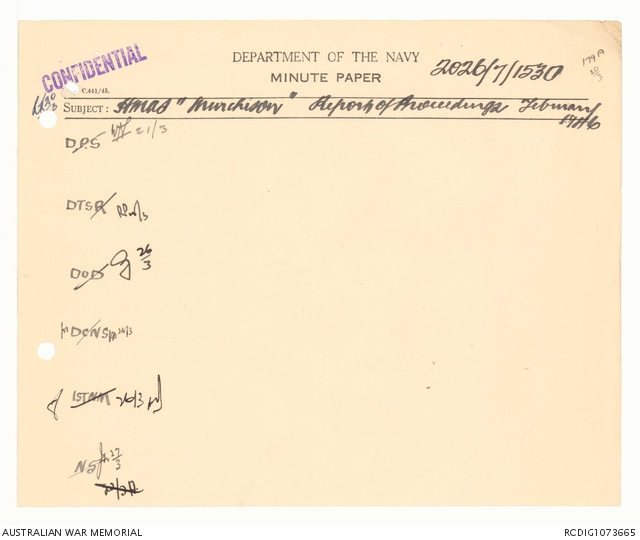 CONFIDENTIAL
DEPARTMENT OF THE NAVY
MINUTE PAPER
2026/7/1530
179A
20/3
C.441/45.
SUBJECT: HMAS "Murchison" Report of Proceedings February
1946
DPS 21/3
DTSR
DOD 26/3
DCNS 26/3
1STNM 26/3
NS 27/3
AUSTRALIAN WAR MEMORIAL
RCDIG1073665